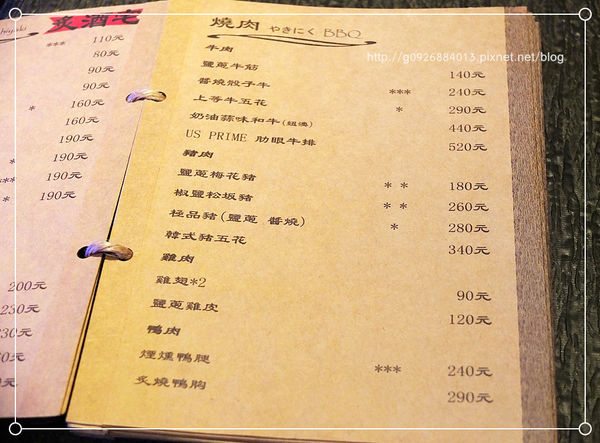 炙酒宅
*** 110元
80元
90元
90元
* 160元
160元
190元
* 190元
*** 190元
* 190元
200元
230元
燒肉 やきにく BBQ
http://g0926884013.pixnet.net/blog
牛肉
鹽蔥牛筋 140元
醬燒骰子牛 *** 240元
上等牛五花 * 290元
奶油蒜味和牛(紐澳) 440元
US PRIME 肋眼牛排 520元
豬肉
鹽蔥梅花豬 * * 180元
椒鹽松坂豬 * * 260元
極品豬(鹽蔥 醬燒) * 280元
韓式豬五花 340元
雞肉
雞翅*2 90元
鹽蔥雞皮 120元
鴨肉
煙燻鴨腿 *** 240元
炙燒鴨胸 290元